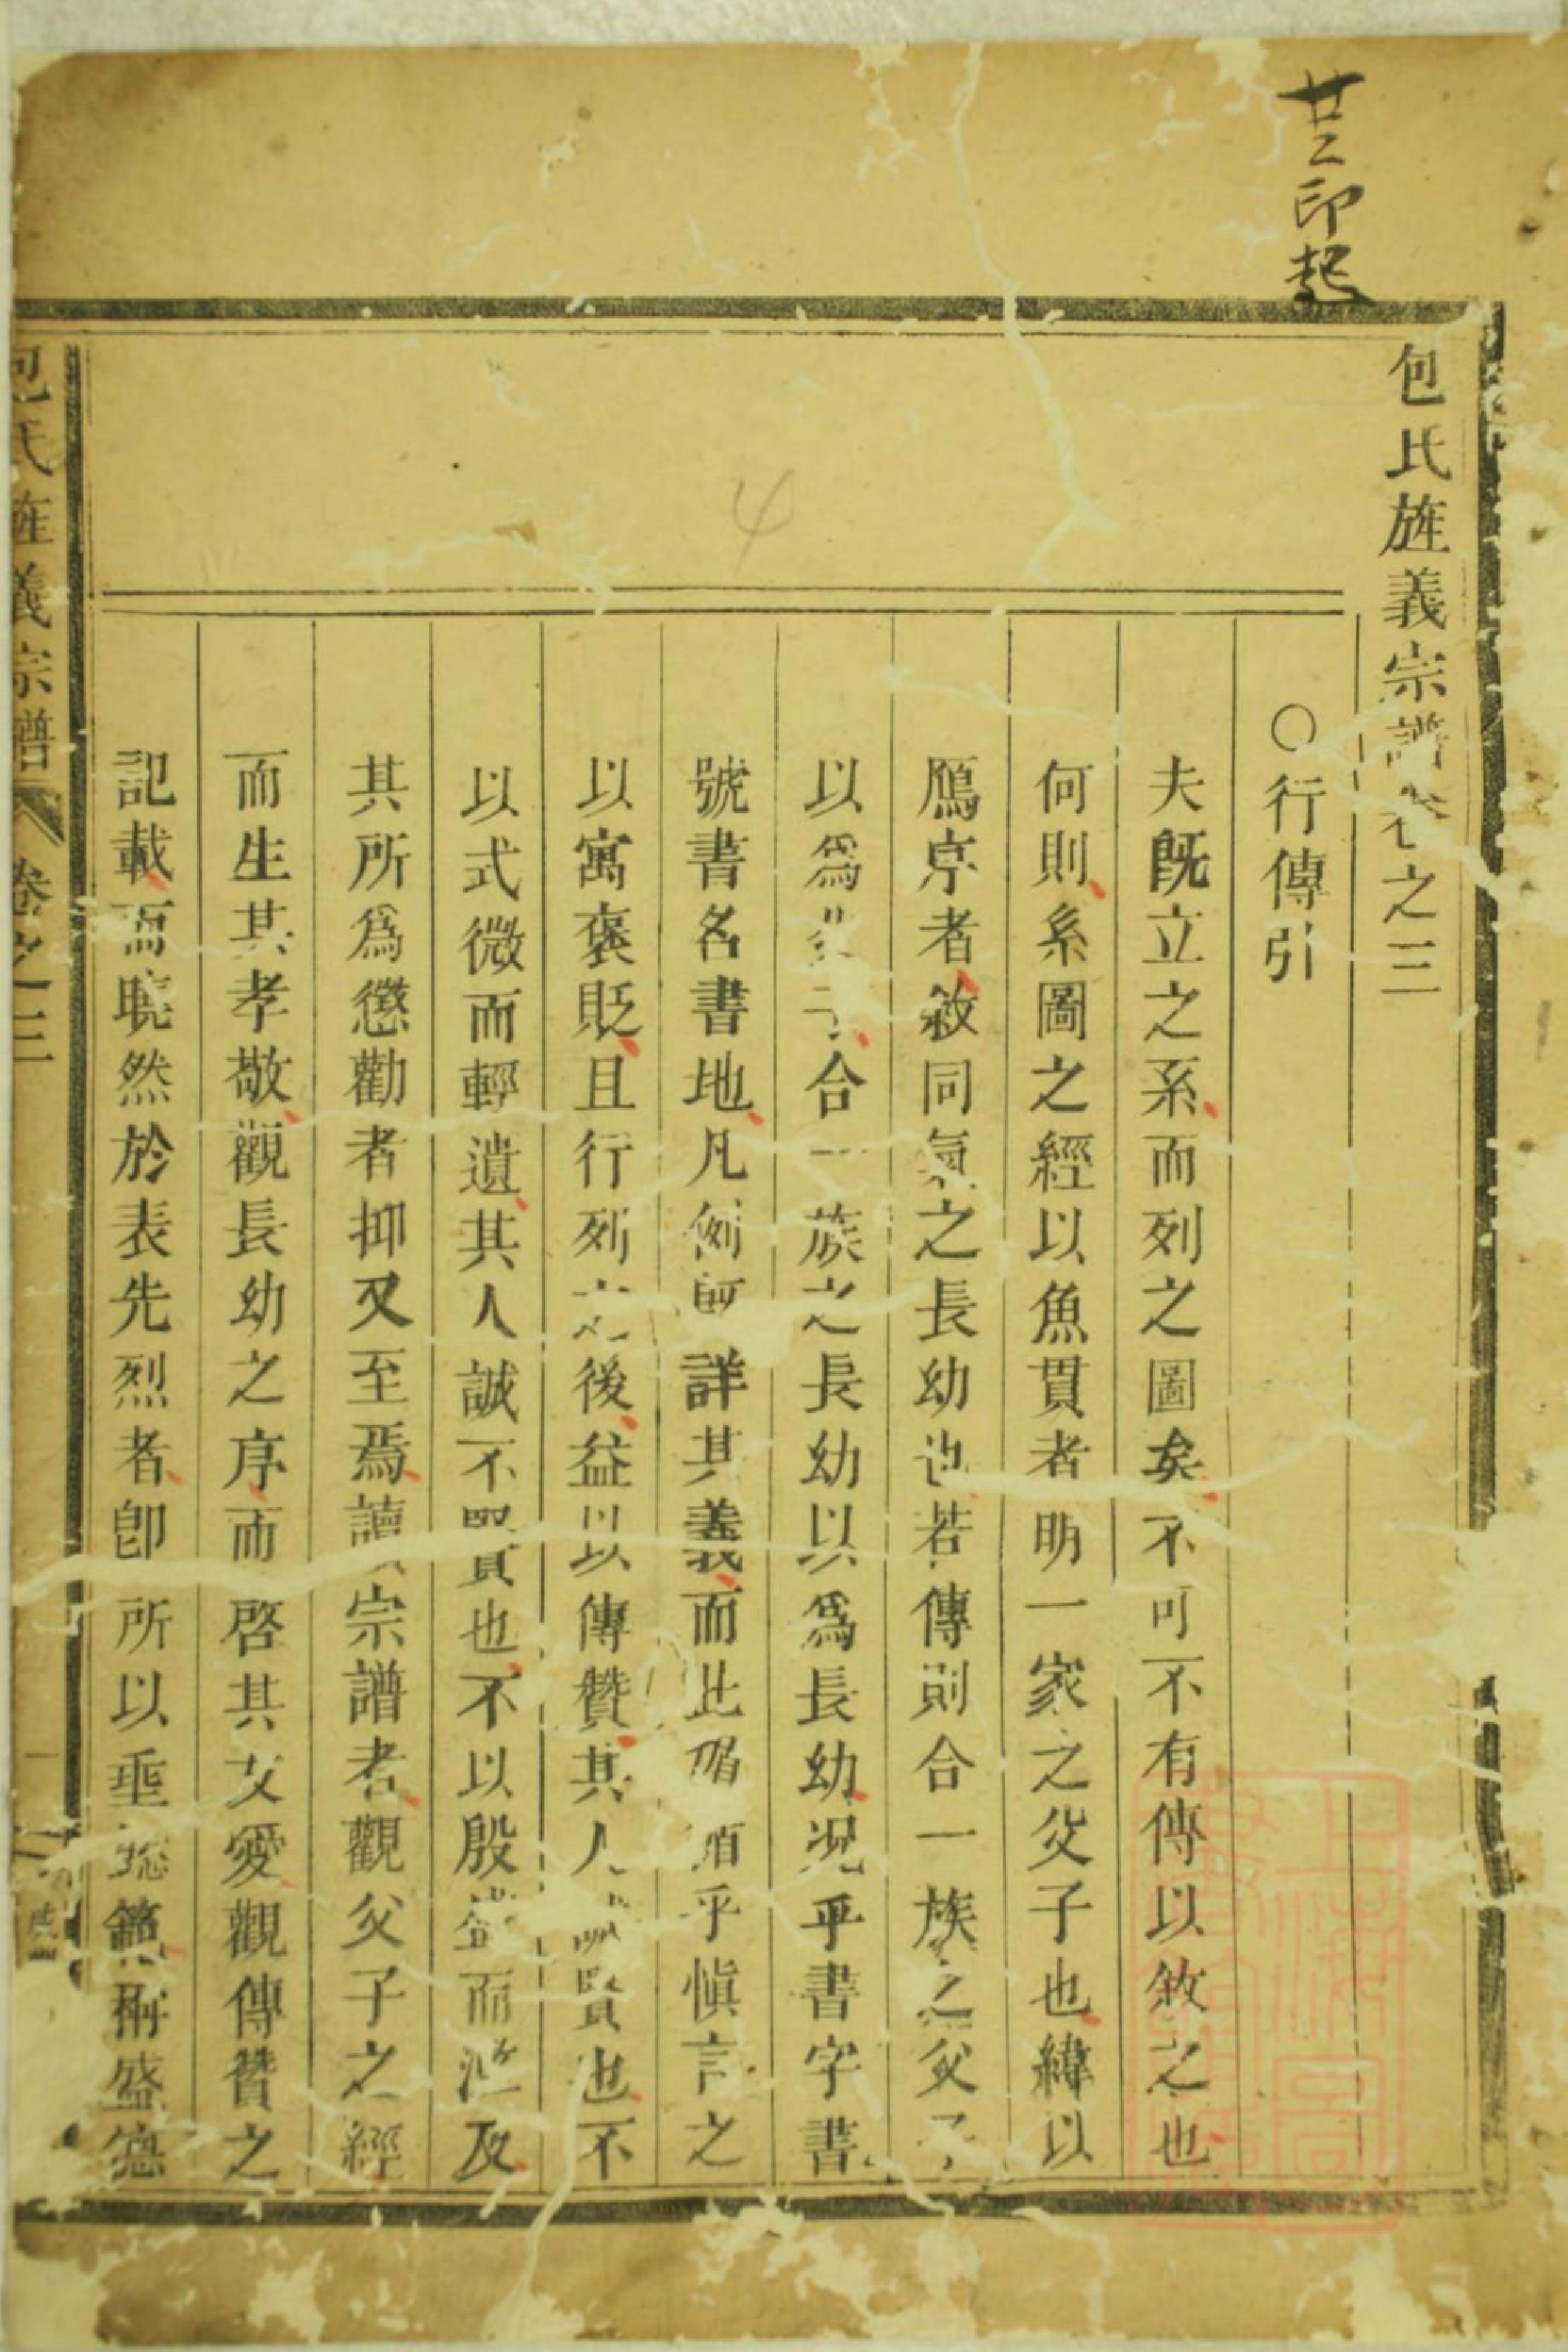 廿二印起
包氏旌義宗譜卷之三
○行傳引
夫既立之系而列之圖矣不可不有傳以敘之也
何則系圖之經以魚貫者明一家之父子也緯以
鴈序者敘同氣之長幼也若傳則合一族之父子
以爲父子合一族之長幼以爲長幼況乎書字書
號書名書地凡例所詳其義而此獨煩乎慎言之
以寓褒貶且行列之後益以傳贊其人賢也不
以式微而輕遺其人誠不賢也不以殷盛而濫及
其所爲懲勸者抑又至焉讀宗譜者觀父子之經
而生其孝敬觀長幼之序而啓其友愛觀傳贊之
記載而曉然於表先烈者卽所以垂範稱盛德
包氏旌義宗譜
卷之三
一
4